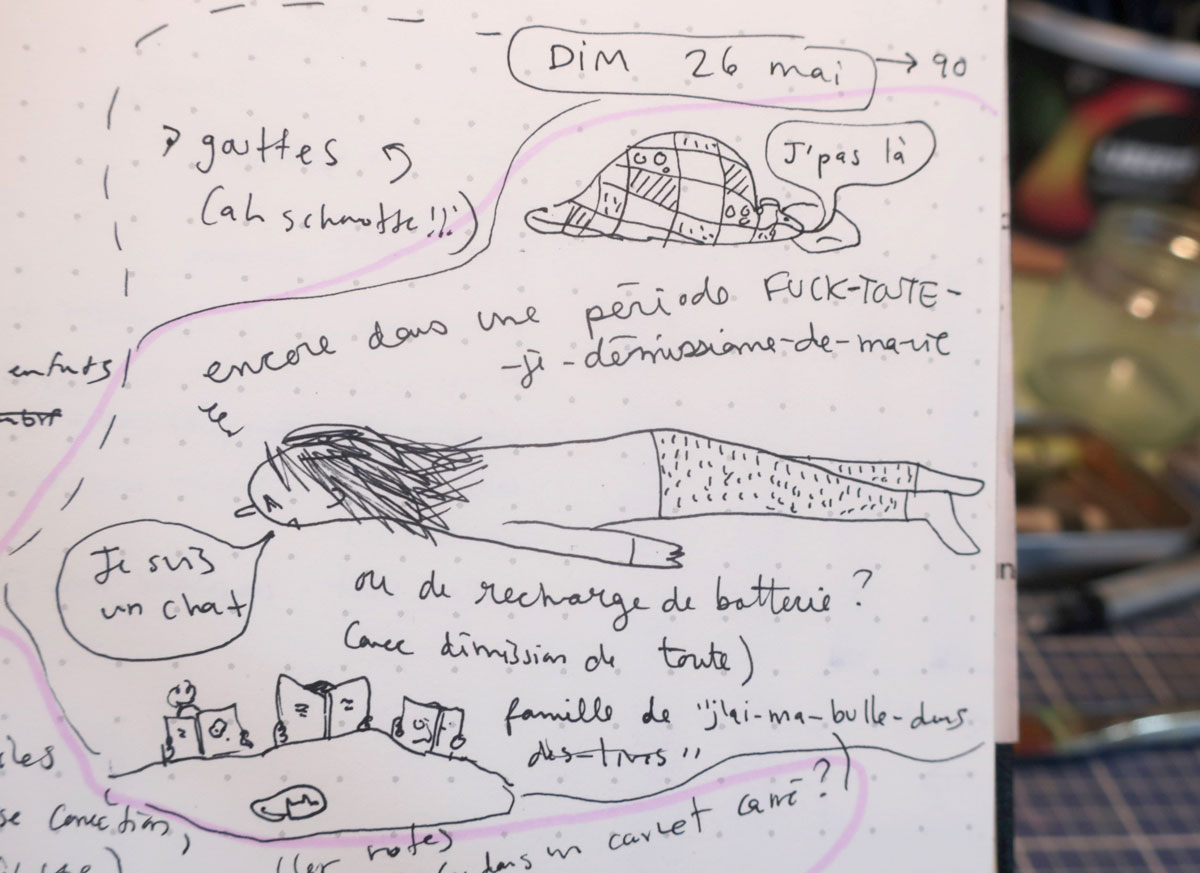 DIM 26 mai → 90
gouttes
(ah schmotte!!!)
J'pas là
encore dans une période FUCK-TOUTE-
-je-démissionne-de-ma-vie
enfuts
Je suis
un chat
ou de recharge de batterie ?
(avec démission de toute)
famille de "j'ai-ma-bulle-dans
des-livres"
iles
se conection,
(les notes
dans un carnet carré ?)